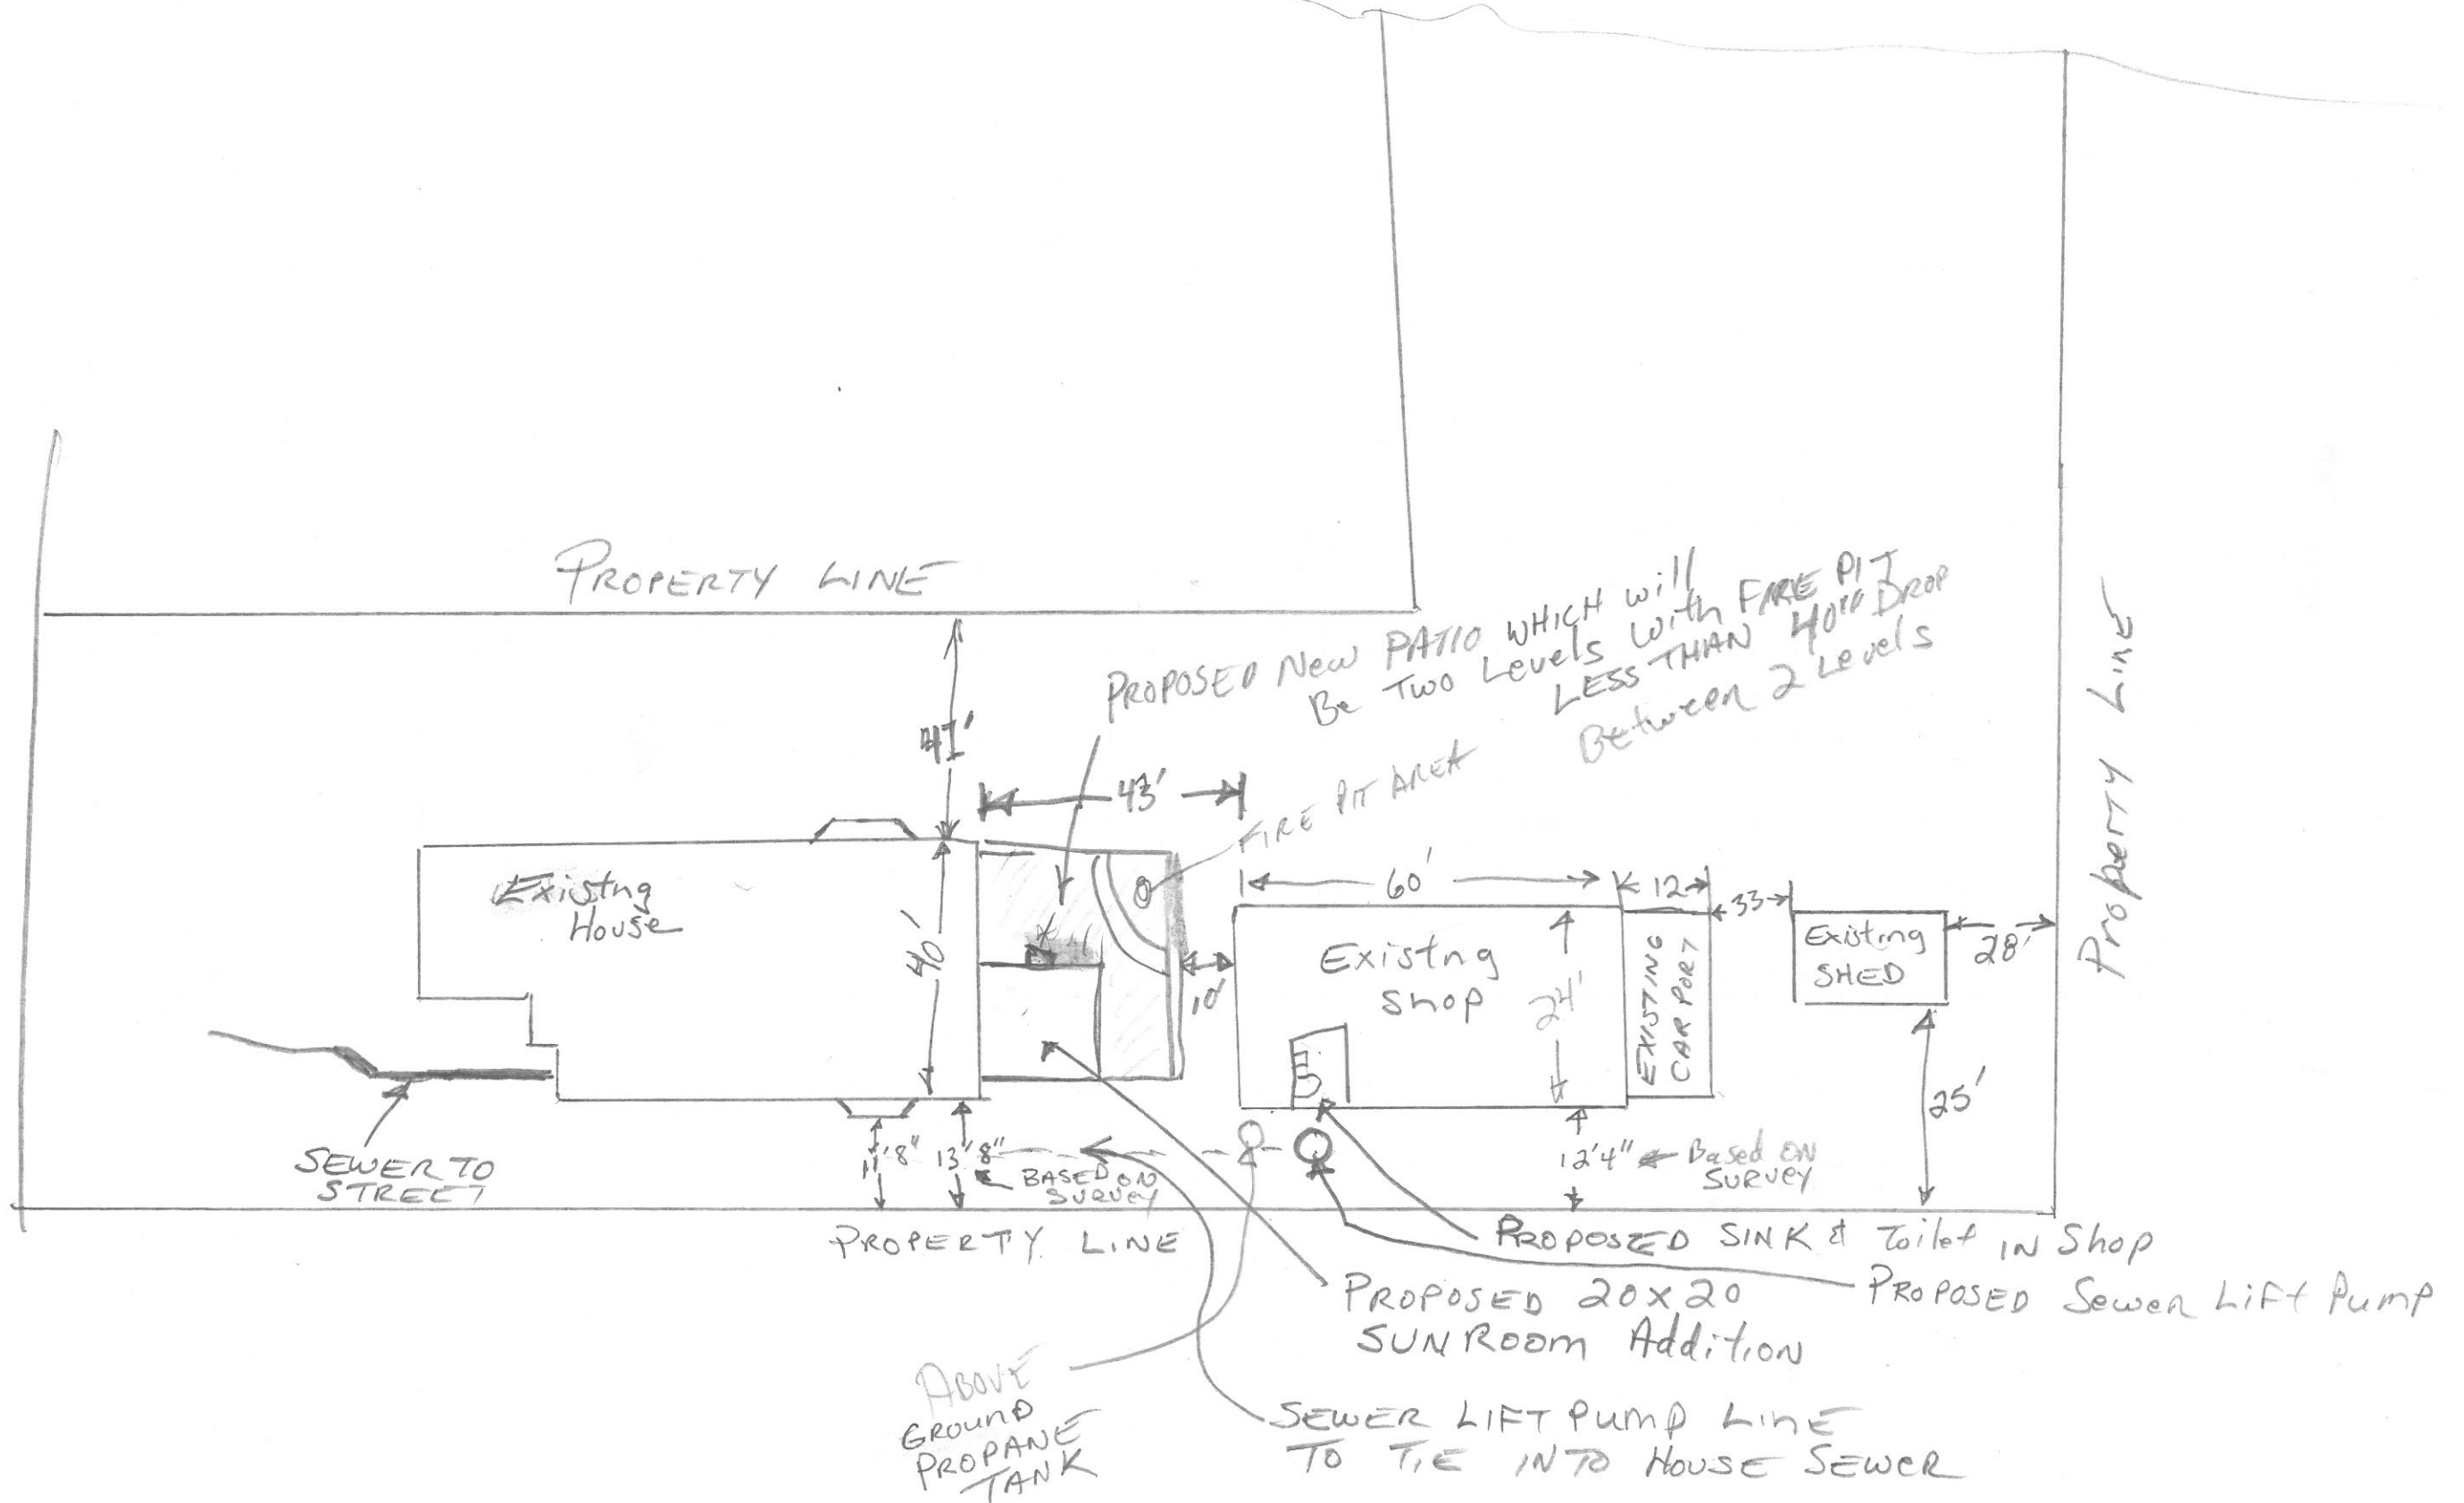 PROPERTY LINE
PROPOSED New PATIO WHICH will
Be Two Levels With FIRE PIT
LESS THAN 40" DROP
Between 2 Levels
FIRE PIT AREA
Property Line
43'
60'
12
33
28'
Existng
House
40'
10'
Existng
Shop
24'
EXISTING
CARPORT
Existing
SHED
25'
SEWER TO
STREET
11'8"
13'8"
BASED ON
SURVEY
12'4"
Based ON
SURVEY
PROPERTY LINE
PROPOSED SINK & Toilet IN Shop
PROPOSED Sewer Lift Pump
PROPOSED 20X20
SUNROOM Addition
ABOVE
GROUND
PROPANE
TANK
SEWER LIFT PUMP LINE
TO TIE INTO HOUSE SEWER